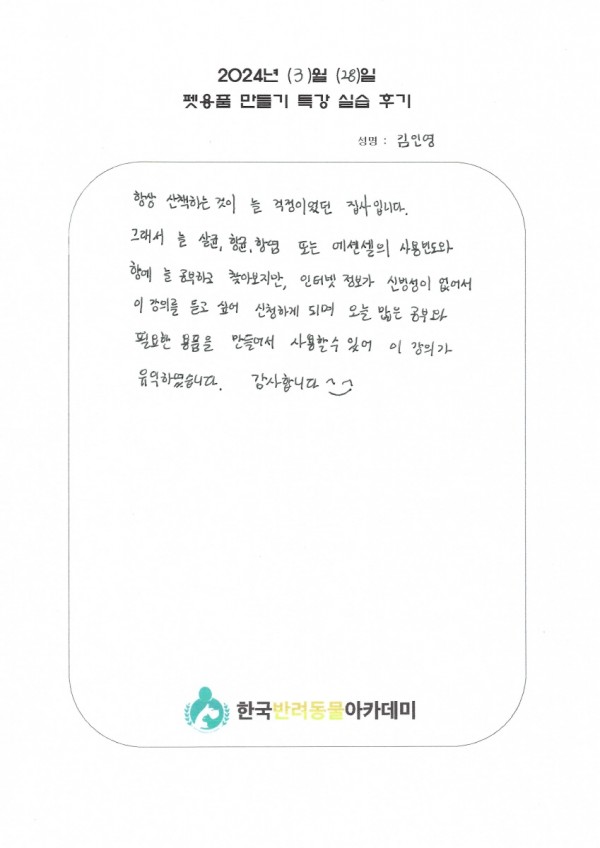 2024년 (3)월 (28)일
펫용품 만들기 특강 실습 후기
성명 : 김인영
항상 산책하는 것이 늘 걱정이었던 집사입니다.
그래서 늘 살균, 항균, 항염 또는 에센셜의 사용빈도와
함께 늘 공부하고 찾아보지만, 인터넷 정보가 신빙성이 없어서
이 강의를 듣고 싶어 신청하게 되며 오늘 많은 공부와
필요한 용품을 만들어서 사용할수 있어 이 강의가
유익하였습니다. 감사합니다 ^^
한국반려동물아카데미